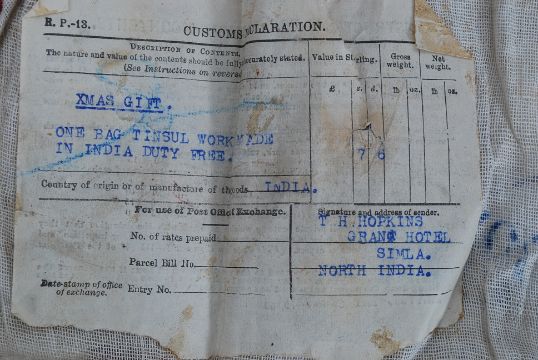 R. P.-13.
CUSTOMS DECLARATION.
DESCRIPTION OF CONTENTS.
The nature and value of the contents should be fully accurately stated.
(See Instructions on reverse
Value in Sterling.
Gross weight.
Net weight.
£ s. d. lb oz. lb oz.
XMAS GIFT.
ONE BAG TINSUL WORK MADE
IN INDIA DUTY FREE.
7 6
Country of origin or of manufacture of the goods INDIA.
For use of Post Office of Exchange.
No. of rates prepaid
Parcel Bill No.
Date-stamp of office of exchange.
Entry No.
Signature and address of sender.
T H HOPKINS
GRAND HOTEL
SIMLA.
NORTH INDIA.